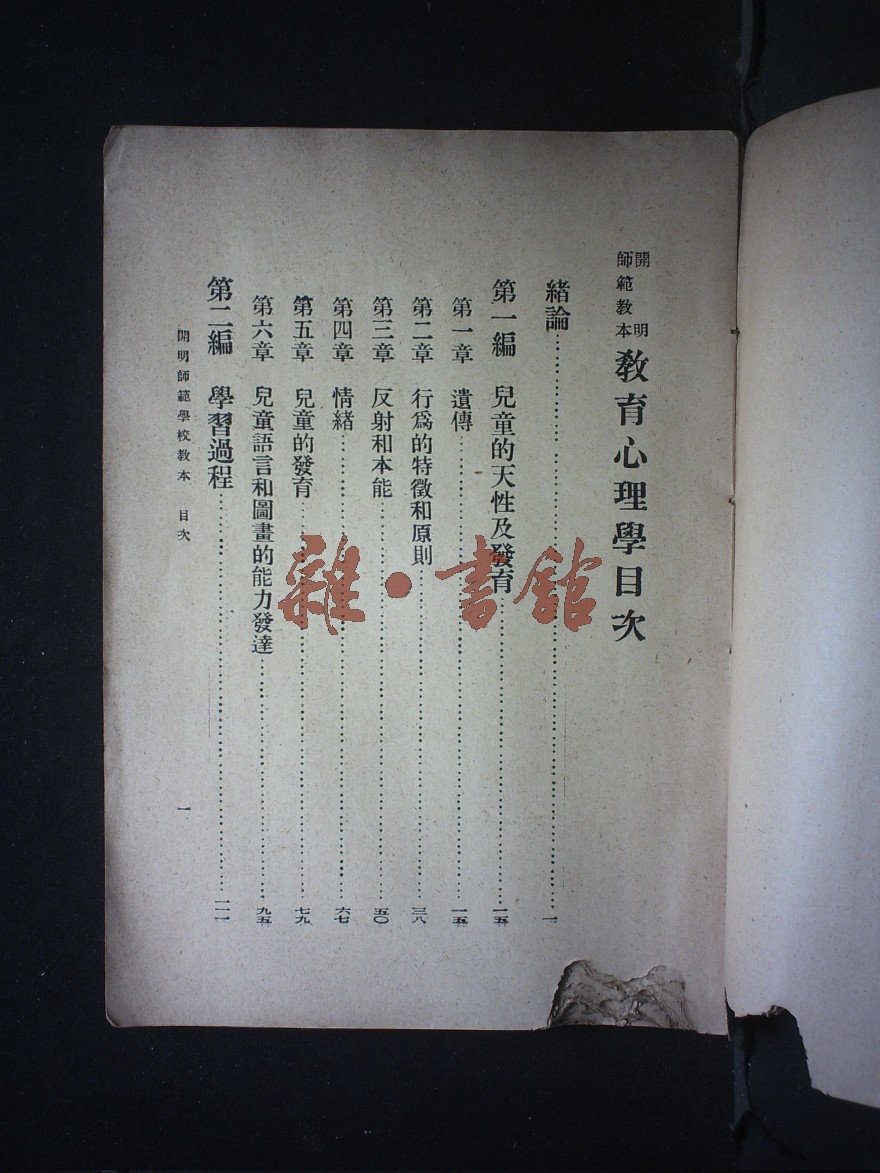 開明師範教本 教育心理學目次
緒論……一
第一編 兒童的天性及發育……一五
第一章 遺傳……一五
第二章 行爲的特徵和原則……三八
第三章 反射和本能……五〇
第四章 情緒……六七
第五章 兒童的發育……七九
第六章 兒童語言和圖畫的能力發達……九五
第二編 學習過程……一一一
開明師範學校教本 目次 一
雜·書館